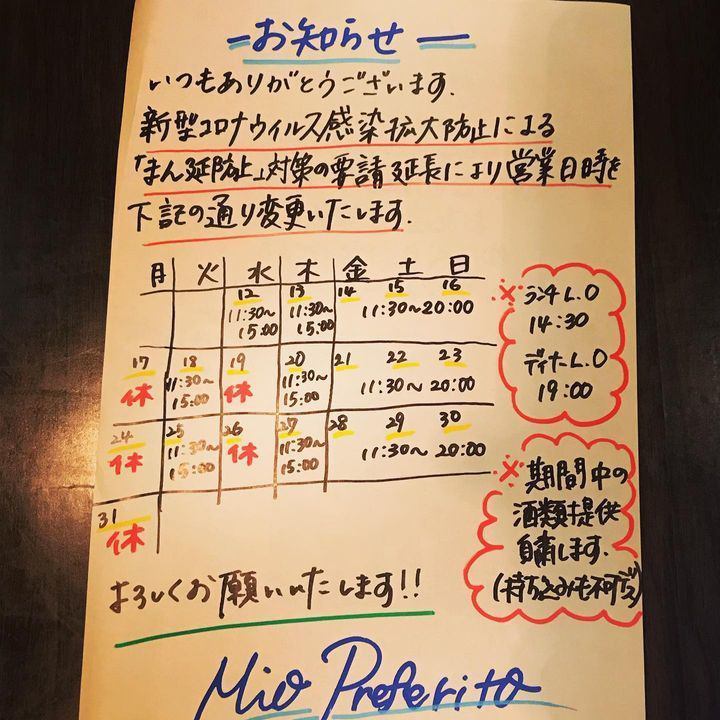 ーお知らせー
いつもありがとうございます.
新型コロナウィルス感染拡大防止による
「まん延防止」対策の要請延長により営業日時を
下記の通り変更いたします.
月 火 水 木 金 土 日
12 13 14 15 16
11:30〜15:00 11:30〜15:00 11:30〜20:00
17 18 19 20 21 22 23
休 11:30〜15:00 休 11:30〜15:00 11:30〜20:00
24 25 26 27 28 29 30
休 11:30〜15:00 休 11:30〜15:00 11:30〜20:00
31
休
※ランチL.O
14:30
ディナーL.O
19:00
※期間中の
酒類提供
自粛します.
(持ち込みも不可です)
よろしくお願いいたします!!
Mio Preferito